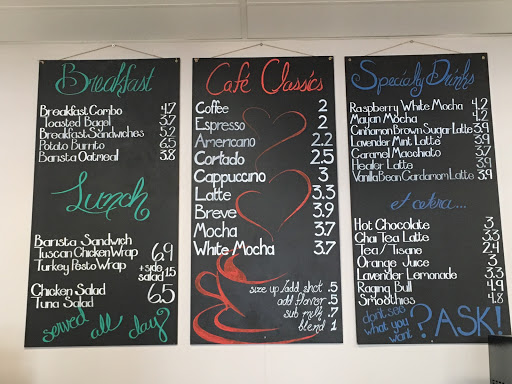 Breakfast
Breakfast Combo 4.7
Toasted Bagel 3.7
Breakfast Sandwiches 5.2
Potato Burrito 6.5
Barista Oatmeal 3.8
Lunch
Barista Sandwich
Tuscan Chicken Wrap 6.9
Turkey Pesto Wrap +side salad 1.5
Chicken Salad 6.5
Tuna Salad
served all day?
Café Classics
Coffee 2
Espresso 2
Americano 2.2
Cortado 2.5
Cappuccino 3
Latte 3.3
Breve 3.9
Mocha 3.7
White Mocha 3.7
size up/add shot .5
add flavor .5
sub milk .7
blend 1
Specialty Drinks
Raspberry White Mocha 4.2
Mayan Mocha 4.2
Cinnamon Brown Sugar Latte 3.9
Lavender Mint Latte 3.9
Caramel Macchiato 3.7
Healer Latte 3.9
Vanilla Bean Cardamom Latte 3.9
et cetera...
Hot Chocolate 3
Chai Tea Latte 3.3
Tea/Tisane 2.4
Orange Juice 3
Lavender Lemonade 3.3
Raging Bull 4.9
Smoothies 4.8
don't see
what you
want? ASK!